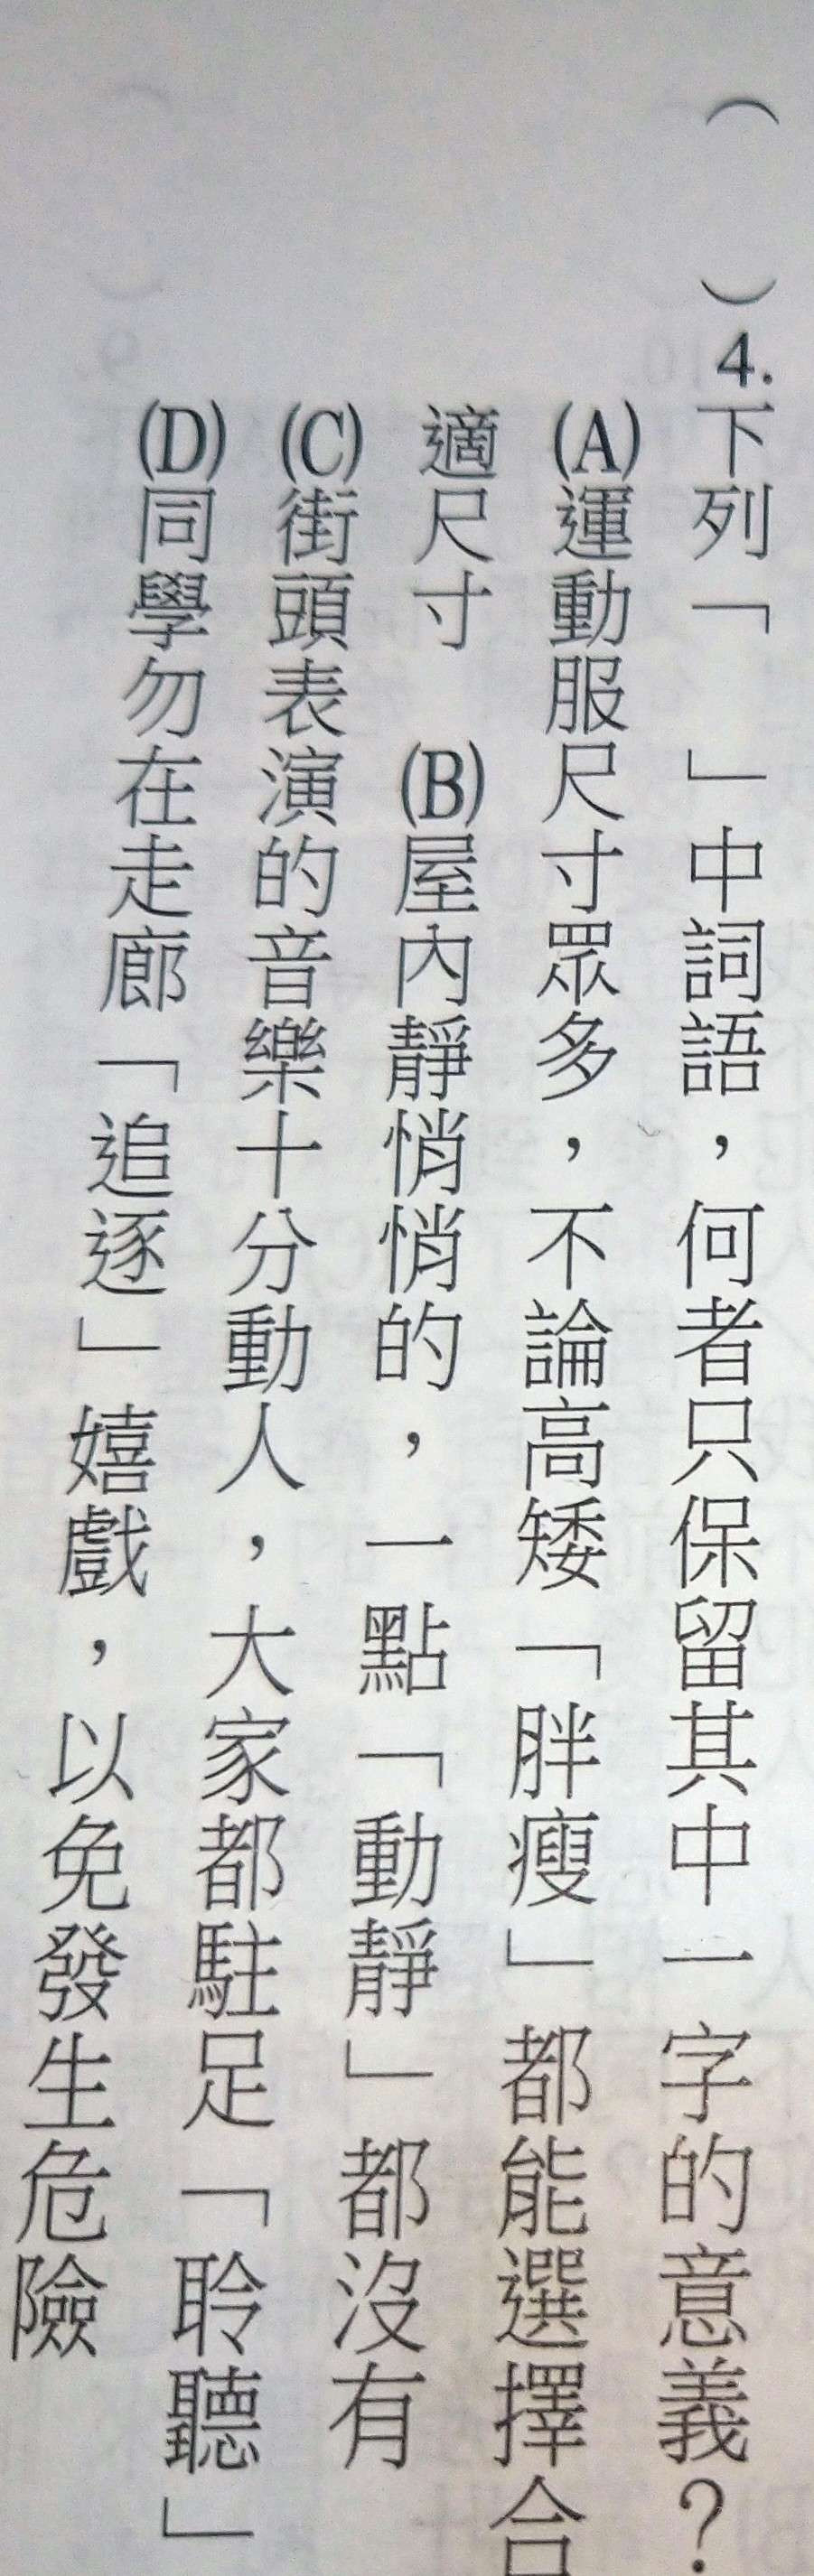 （　　）4.下列「　」中詞語，何者只保留其中一字的意義？
(A)運動服尺寸眾多，不論高矮「胖瘦」都能選擇合
適尺寸　(B)屋內靜悄悄的，一點「動靜」都沒有
(C)街頭表演的音樂十分動人，大家都駐足「聆聽」
(D)同學勿在走廊「追逐」嬉戲，以免發生危險